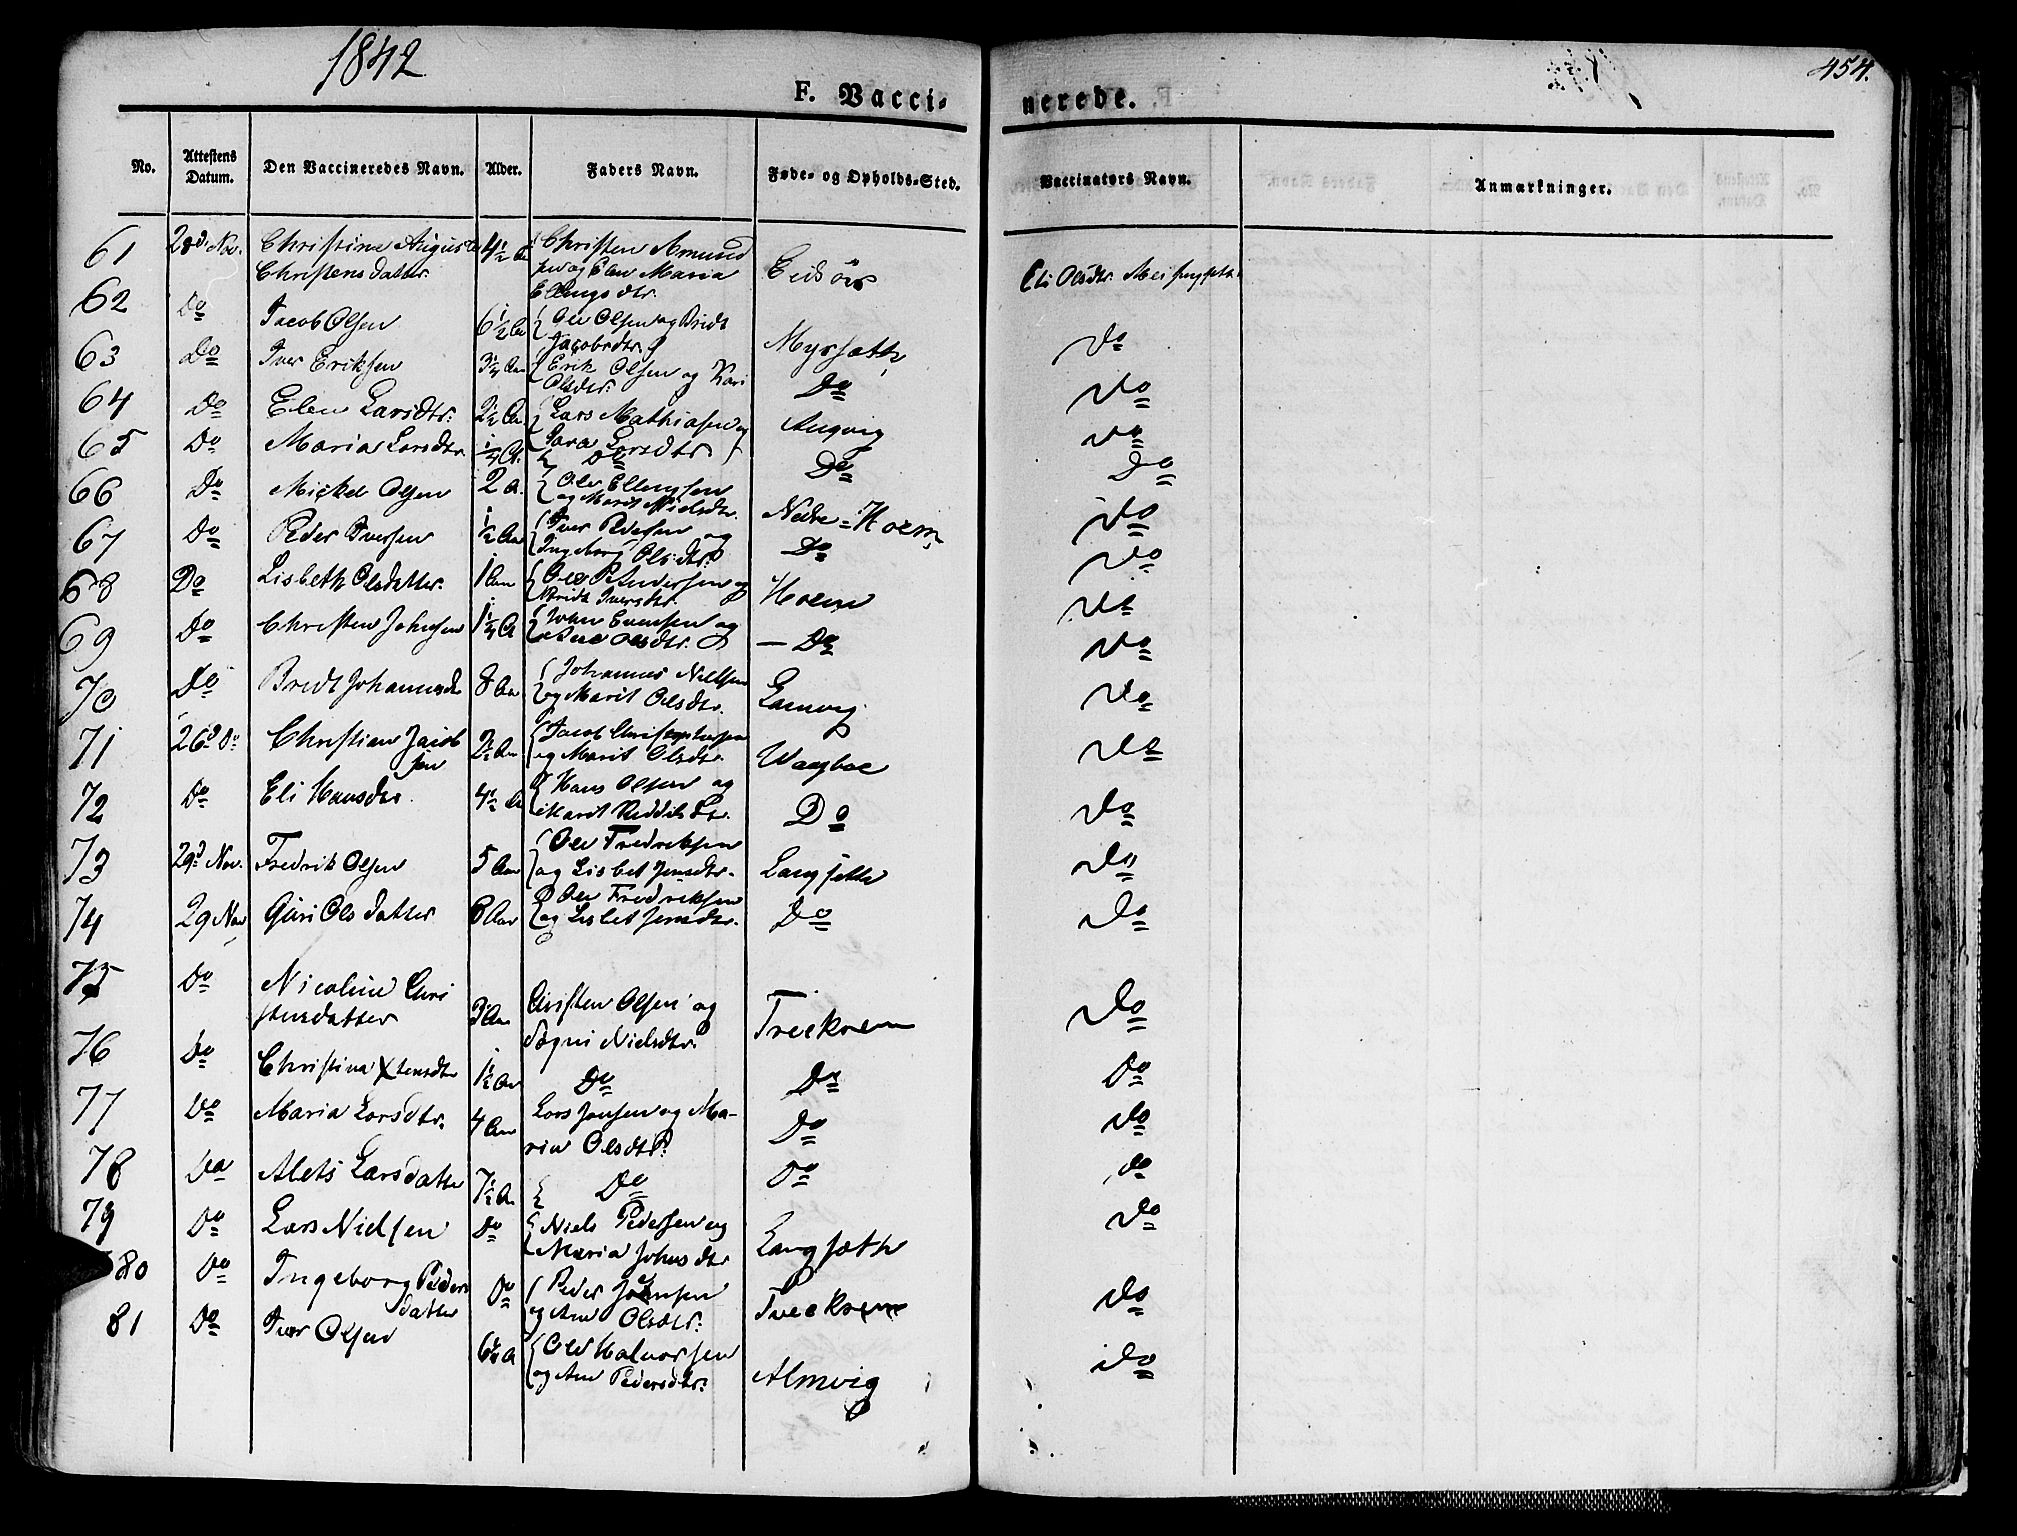 1842
454.
F. Vacci-
nerede.
No.
Attestens Datum.
Den Vaccineredes Navn.
Alder.
Faders Navn.
Føde- og Opholds-Sted.
Vaccinators Navn.
Anmærkninger.
61 28d Nov. Christine Auguste 4 1/2 Christen Amund
Christensdatter sen og Elen Maria Eidsör Eli Olsdtr.
Ellingsdtr.
62 Do Jacob Olsen 6 1/2 Aar Ole Olsen og Bridt
Jacobsdtr. Myrsæth Do
63 Do Iver Eriksen 3 1/4 Aar Erik Olsen og Kari
Olsdtr. Do Do
64 Do Elen Larsdtr. 2 1/2 Aar Lars Mathiasen og Angvig Do
65 Do Maria Larsdtr. 1/4 A. Sara Larsdtr
Do Do Do
66 Do Mickel Olsen 2 A. Ole Ellingsen
og Marit Nielsdtr. Nedre-Hoem Do
67 Do Peder Iversen 1/2 Aar Iver Pedersen og
Ingeborg Olsdtr. Do Do
68 Do Lisbeth Olsdatter. 1 Aar Ole Pedersen og
Bridt Iversdtr. Hoem Do
69 Do Christen Johnsen 1 1/4 A John Evensen og
Olsdtr. — Do Do
70 Do Bridt Johannesdr 8 Aar Johannes Nielsen
og Marit Olsdtr. Do
71 26d Do Christian Jacob 2 1/2 Aar Jacob Christophersen
sen og Marit Olsdtr. Waagboe Do
72 Do Eli Hansdtr. 4 1/2 A Hans Olsen og
Marit Do Do
73 29d Nov. Fredrik Olsen 5 Aar Ole Fredriksen
og Lisbet Jensdtr. Langsæth Do
74 29 Nov Guri Olsdatter 8 Aar Ole Fredriksen
og Lisbet Jensdtr. Do Do
75 Do Nicoline Chri
stensdatter 3 Aar Christen Olsen og Treekrem Do
Nielsdtr.
76 Do Christina Xtensdtr 1 1/2 Aar Do Do Do
77 Do Maria Larsdtr. 4 Aar Lars Jensen og Ma-
ria Olsdtr. Do Do
78 Do Alets Larsdatter 7 1/2 A Do Do Do
79 Do Lars Nielsen Do Niels Pedersen og
Maria Johnsdtr Langsæth Do
80 Do Ingeborg Peders
datter Do Peder Johnsen
og Ane Olsdtr. Treekrem Do
81 Do Iver Olsen 6 1/4 A Ole Halvorsen
og Ane Pedersdtr. Almvig Do